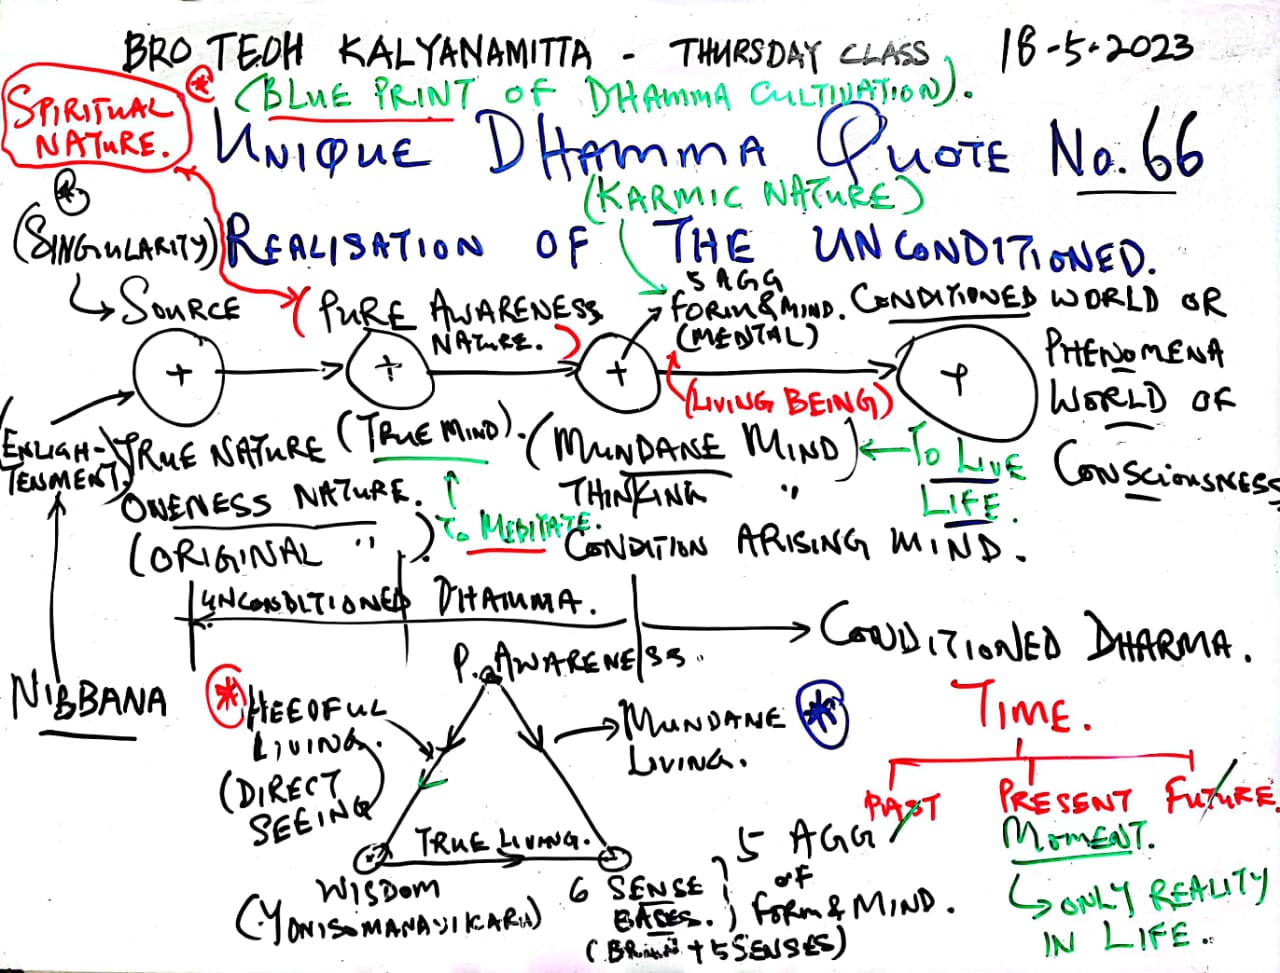 BRO TEOH KALYANAMITTA - THURSDAY CLASS 18-5-2023
(BLUE PRINT OF DHAMMA CULTIVATION).
SPIRITUAL
NATURE.
UNIQUE DHAMMA QUOTE No. 66
(KARMIC NATURE)
(SINGULARITY)
REALISATION OF THE UNCONDITIONED.
SOURCE
PURE AWARENESS
NATURE.
5 AGG
FORM & MIND.
(MENTAL)
CONDITIONED WORLD OR
PHENOMENA
WORLD OF
CONSCIOUSNESS
(LIVING BEING)
(ENLIGH-
TENMENT)
TRUE NATURE
ONENESS NATURE.
(ORIGINAL ")
(TRUE MIND).
TO MEDITATE.
(MUNDANE MIND)
THINKING "
CONDITION ARISING MIND.
TO LIVE
LIFE.
UNCONDITIONED DHAMMA.
CONDITIONED DHARMA.
NIBBANA
P. AWARENESS.
HEEDFUL
LIVING.
(DIRECT
SEEING
MUNDANE
LIVING.
TRUE LIVING.
WISDOM
(YONISOMANASIKARA)
6 SENSE
BASES.
(BRAIN + 5 SENSES)
5 AGG
OF
FORM & MIND.
TIME.
PAST PRESENT FUTURE.
MOMENT.
ONLY REALITY
IN LIFE.